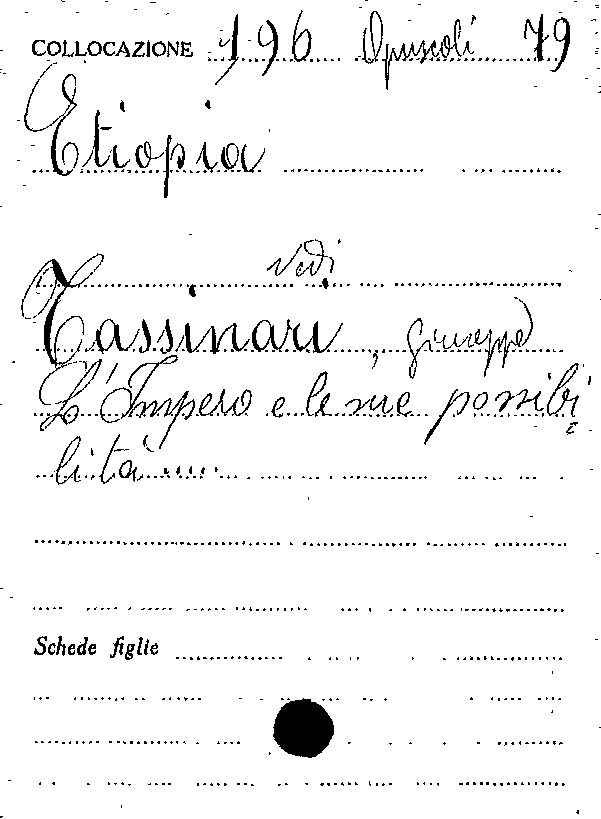 COLLOCAZIONE 196 Opuscoli 79
Etiopia
Vedi
Tassinari, Giuseppe
L'Impero e le sue possibi
lità....
Schede figlie